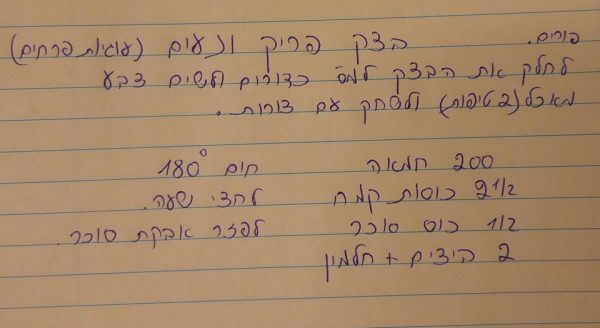 פורים. בצק פריק ונעים (עוגיות פרחים)
לחלק את הבצק למס׳ כדורים ולשים צבע
מאכל (2 טיפות) ולשחק עם צורות.
200 חמאה חום 180°
2 1/2 כוסות קמח לחצי שעה.
1/2 כוס סוכר לפזר אבקת סוכר.
2 ביצים + חלמון